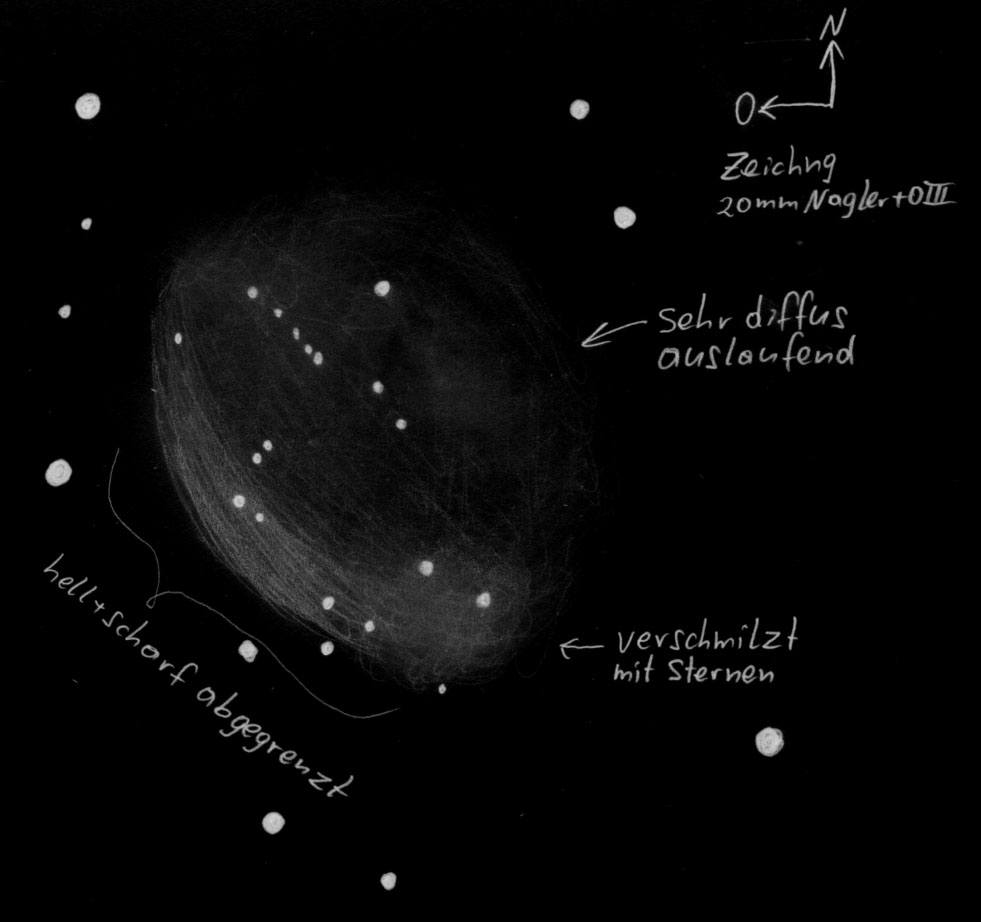 N
O
Zeichng
20mm Nagler+OIII
sehr diffus
auslaufend
verschmilzt
mit Sternen
hell+scharf abgegrenzt